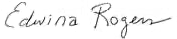 Edwina Rogers